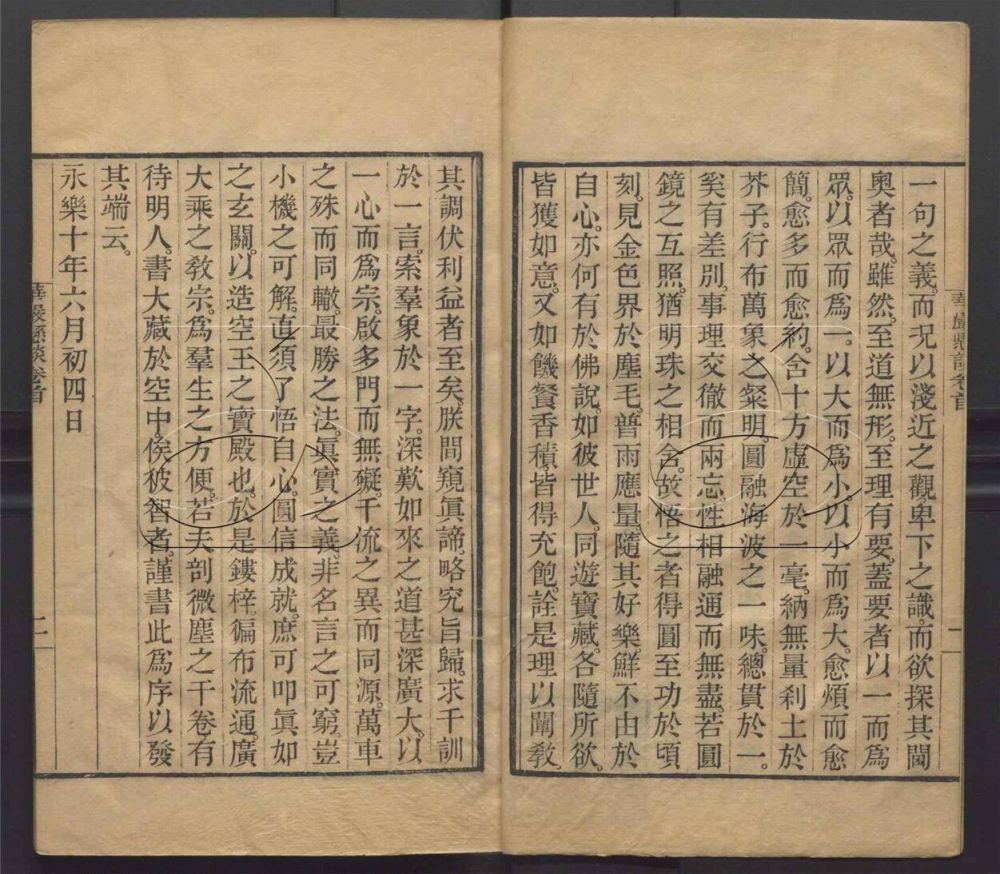 一句之義。而況以淺近之觀。卑下之識。而欲探其閫
奧者哉。雖然。至道無形。至理有要。蓋要者以一而爲
眾。以眾而爲一。以大而爲小。以小而爲大。愈煩而愈
簡。愈多而愈約。含十方虛空於一毫。納無量刹土於
芥子。行布萬象之粲明。圓融海波之一味。總貫於一。
奚有差別。事理交徹而兩忘。性相融通而無盡。若圓
鏡之互照。猶明珠之相含。故悟之者得圓至功於頃
刻。見金色界於塵毛。普雨應量。隨其好樂。鮮不由於
自心。亦何有於佛說。如彼世人。同遊寶藏。各隨所欲。
皆獲如意。又如饑餐香積。皆得充飽。詮是理以闡教。
華嚴懸談卷首
二
其調伏利益者至矣。朕間窺眞諦。略究旨歸。求千訓
於一言。索羣象於一字。深歎如來之道甚深廣大。以
一心而爲宗。啟多門而無礙。千流之異而同源。萬車
之殊而同轍。最勝之法。眞實之義。非名言之可窮。豈
小機之可解。直須了悟自心。圓信成就。庶可叩眞如
之玄關。以造空王之寶殿也。於是鏤梓。徧布流通。廣
大乘之教宗。爲羣生之方便。若夫剖微塵之千卷有
待明人。書大藏於空中。俟彼智者。謹書此爲序以發
其端云。
永樂十年六月初四日
華嚴懸談卷首
二